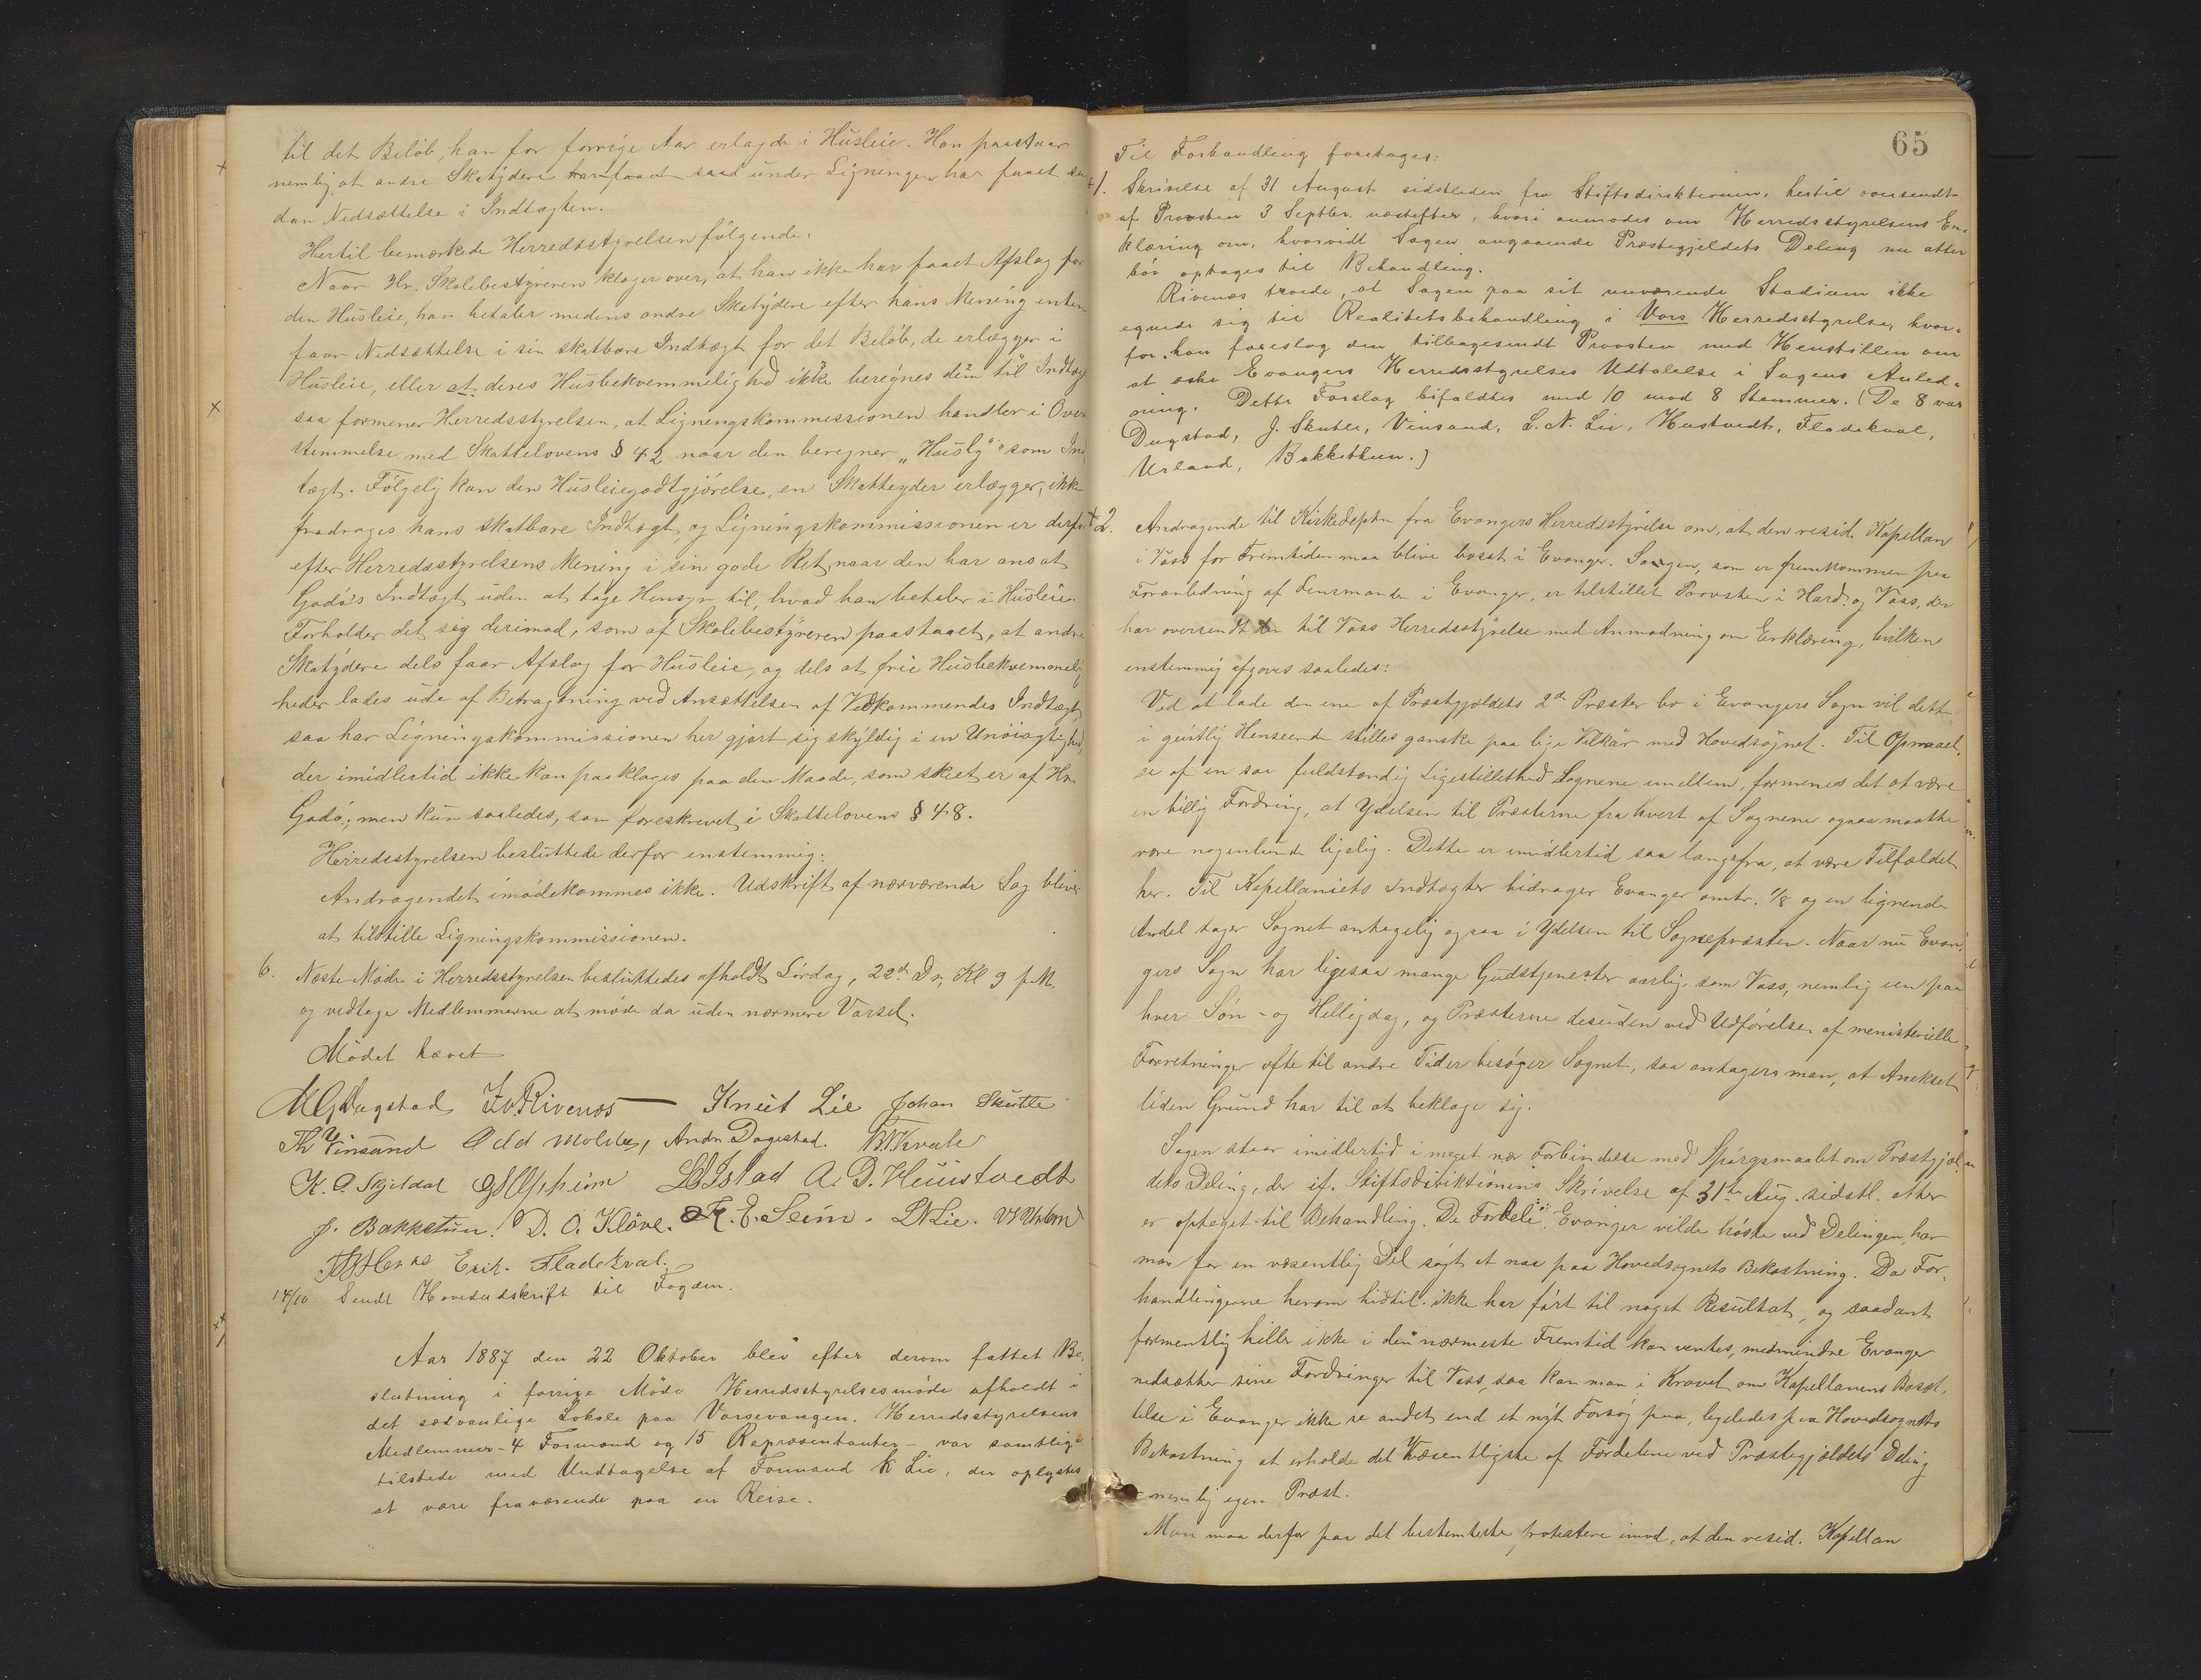 til det Beløb, han for forrige Aar erlagde i Husleie. Han paastaar
nemlig, at andre Skatydere har faaet saad under Ligningen har faaet saa
dan Nedsættelse i Indtægten.
Hertil bemærkede Herredsstyrelsen følgende:
Naar Hr. Skolebestyreren klager over, at han ikke har faaet Afslag for
den Husleie, han betaler medens andre Skatydere efter hans Mening enten
faar Nedsættelse i sin skatbare Indtægt for det Beløb, de erlægger i
Husleie, eller at deres Husbekvemmelighed ikke beregnes dem til Indtægt
saa formener Herredsstyrelsen, at Ligningskommissionen handler i Over
stemmelse med Skattelovens § 42 naar den beregner "Husly" som Ind
tægt. Følgelig kan den Husleiegodtgjørelse, en Skatteyder erlægger, ikke
fradrages hans skatbare Indtægt, og Ligningskommissionen er derfor
efter Herredsstyrelsens Mening i sin gode Ret, naar den har ansat
Gadø's Indtægt uden at tage Hensyn til, hvad han betaler i Husleie.
Forholder det sig derimod, som af Skolebestyreren paastaaet, at andre
Skatydere dels faar Afslag for Husleie, og dels at frie Husbekvemmelig
heder lades ude af Betragtning ved Ansættelsen af Vedkommendes Indtægt,
saa har Ligningskommissionen her gjort sig skyldig i en Unøiagtighed,
der imidlertid ikke kan paaklages paa den Maade, som skeet er af Hr.
Gadø; men kun saaledes, som foreskrevet i Skattelovens § 48.
Herredsstyrelsen besluttede derfor enstemmig:
Andragendet imødekommes ikke. Udskrift af nærværende Sag bliver
at tilstille Ligningskommissionen.
6. Næste Møde i Herredsstyrelsen besluttedes afholdt Lørdag, 22de Ds, Kl 9 f.M.
og vedtoge Medlemmerne at møde da uden nærmere Varsel.
Mødet hævet
Dugstad Iv. Rivenæs Knut Lie Johan Skutle
Th Vinsand Odd Molster, Andr. Dagestad. Kvale
K. O. Skjeldal Opheim Istad A. D. Huustvedt
J. Bakketun. D. O. Kløve. K. E. Seim. LNLie.
Erik. Fladekval.
14/10 Sendt Hovedudskrift til Fogden.
Aar 1887 den 22 Oktober blev efter derom fattet Be,
slutning i forrige Møde Herredsstyrelsesmøde afholdt i
det sædvanlige Lokale paa Vossevangen. Herredsstyrelsens
Medlemmer - 4 Formænd og 15 Repræsentanter - var samtlige
tilstede med Undtagelse af Formand K Lie, der oplystes
at være fraværende paa en Reise.
65
Til Forhandling foretages:
1. Skrivelse af 31 August sidstleden fra Stiftsdirektionen, hertil oversendt
af Provsten 3 Septbr. næstefter, hvori anmodes om Herredsstyrelsens Er,
klæring om, hvorvidt Sagen angaaende Præstegjeldets Deling nu atter
bør optages til Behandling.
Rivenæs troede, at Sagen paa sit nuværende Stadium ikke
egnede sig til Realitetsbehandling i Vors Herredsstyrelse, hvor,
for han foreslog den tilbagesendt Provsten med Henstillen om
at æske Evangers Herredsstyrelses Udtalelse i Sagens Anled,
ning. Dette Forslag bifaldtes med 10 mod 8 Stemmer. (De 8 var
Dugstad, J. Skutle, Vinsand, L. N. Lie, Hustvedt, Fladekval,
Urland, Bakkethun.)
2. Andragende til Kirkedeptn fra Evangers Herredsstyrelse om, at den resid. Kapellan
i Voss for Fremtiden maa blive bosat i Evanger. Sagen, som er fremkommen paa
Foranledning af Lensmanden i Evanger, er tilstillet Provsten i Hard. og Voss, der
har oversendt den til Voss Herredsstyrelse med Anmodning om Erklæring, hvilken
enstemmig afgaves saaledes:
Ved at lade den ene af Præstgjældets 2de Præster bo i Evangers Sogn vil dette
i geistlig Henseende stilles ganske paa lige Vilkaar med Hovedsognet. Til Opnaael,
se af en saa fuldstændig Ligestillethed Sognene imellem, formenes det at være
en billig Fordring, at Ydelsen til Præsterne fra hvert af Sognene ogsaa maatte
være nogenlunde ligelig. Dette er imidlertid saa langtfra, at være Tilfældet
her. Til Kapellaniets Indtægter bidrager Evanger omtr. 1/8 og en lignende
Andel tager Sognet antagelig ogsaa i Ydelsen til Sognepræsten. Naar nu Evan,
gers Sogn har ligesaa mange Gudstjenester aarlig som Voss, nemlig een paa
hver Søn- og Helligdag, og Præsterne desuden ved Udførelsen af ministerielle
Forretninger ofte til andre Tider besøger Sognet, saa antagers man, at Anekset
liden Grund har til at beklage sig.
Sagen staar imidlertid i meget nær Forbindelse med Spørgsmaalet om Præstgjæl,
dets Deling, der if. Stiftsdirektionens Skrivelse af 31te Aug. sidstl. atter
er optaget til Behandling. De Fordele Evanger vilde høste ved Delingen, har
man for en væsentlig Del søgt at naa paa Hovedsognets Bekostning. Da For,
handlingerne herom hidtil ikke har ført til noget Resultat, og saadant
formentlig heller ikke i den nærmeste Fremtid kan ventes, medmindre Evanger
nedsætter sine Fordringer til Voss, saa kan man i Kravet om Kapellanens Bosæt,
telse i Evanger ikke se andet end et nyt Forsøg paa, ligeledes paa Hovedsognets
Bekostning at erholde det Væsentligste af Fordelene ved Præstegjældets Deling
nemlig egen Præst.
Man maa derfor paa det bestemteste protestere imod, at den resid. Kapellan